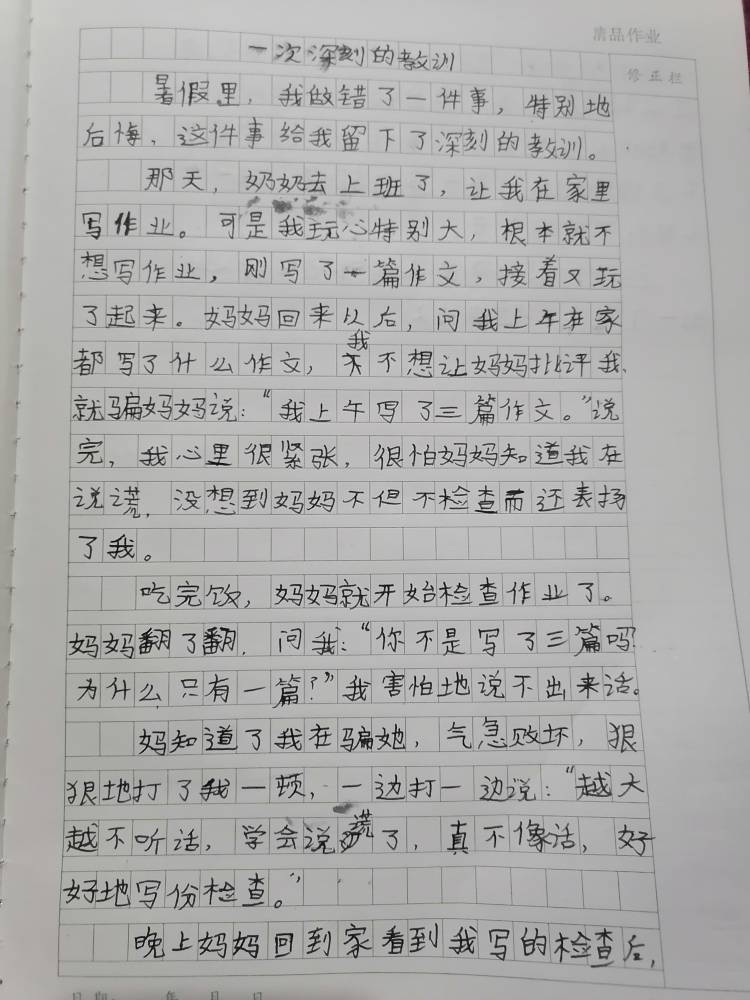 清品作业
修正栏
一次深刻的教训
暑假里，我做错了一件事，特别地
后悔，这件事给我留下了深刻的教训。
那天，妈妈去上班了，让我在家里
写作业。可是我玩心特别大，根本就不
想写作业，刚写了一篇作文，接着又玩
了起来。妈妈回来以后，问我上午在家
都写了什么作文，我不想让妈妈批评我，
就骗妈妈说：“我上午写了三篇作文。”说
完，我心里很紧张，很怕妈妈知道我在
说谎，没想到妈妈不但不检查而还表扬
了我。
吃完饭，妈妈就开始检查作业了。
妈妈翻了翻，问我：“你不是写了三篇吗？
为什么只有一篇？”我害怕地说不出来话。
妈知道了我在骗她，气急败坏，狠
狠地打了我一顿，一边打一边说：“越大
越不听话，学会说谎了，真不像话，好
好地写份检查。”
晚上妈妈回到家看到我写的检查后，
年 月 日